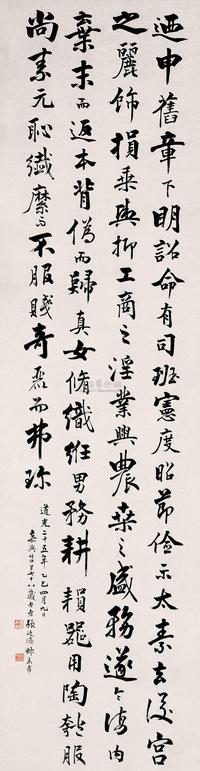 迺申舊章下明詔命有司班憲度昭節儉示太素去後宮
之麗飾損乘輿抑工商之淫業興農桑之盛務遂令海內
棄末而返本背偽而歸真女脩織紝男務耕器用陶匏服
尚素元恥纖靡而不服賤奇麗而弗珍
道光二十五年乙巳四月九日
嘉興竹里七十八歲老者張廷濟叔未甫